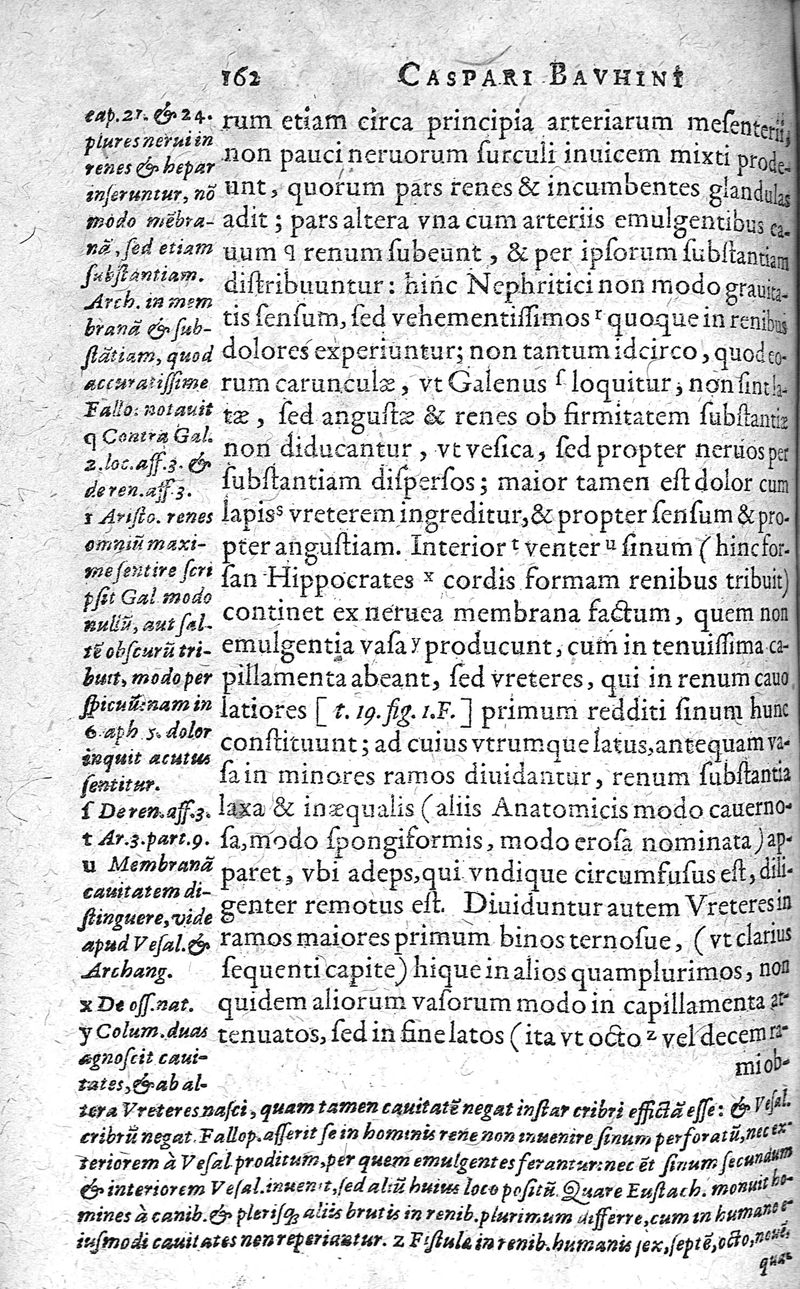 162 CASPARI BAVHINI
rum etiam circa principia arteriarum meſenterij,
non pauci neruorum ſurculi inuicem mixti prode-
unt, quorum pars renes & incumbentes glandulas
adit; pars altera vna cum arteriis emulgentibus ca-
uum q renum ſubeunt, & per ipſorum ſubſtantiam
diſtribuuntur: hinc Nephritici non modo grauita-
tis ſenſum, ſed vehementiſſimos r quoque in renibus
dolores experiuntur; non tantum idcirco, quod eo-
rum carunculæ, vt Galenus ſ loquitur, non ſint la-
tæ, ſed anguſtæ & renes ob firmitatem ſubſtantiæ
non diducantur, vt veſica, ſed propter neruos per
ſubſtantiam diſperſos; maior tamen eſt dolor cum
lapis s vreterem ingreditur, & propter ſenſum & pro-
pter anguſtiam. Interior t venter u ſinum (hinc for-
ſan Hippocrates x cordis formam renibus tribuit)
continet ex neruea membrana factum, quem non
emulgentia vaſa y producunt, cum in tenuiſſima ca-
pillamenta abeant, ſed vreteres, qui in renum cauo
latiores [t. 19. fig. 1. F.] primum redditi ſinum hunc
conſtituunt; ad cuius vtrumque latus, antequam va-
ſa in minores ramos diuidantur, renum ſubſtantia
laxa & inæqualis (aliis Anatomicis modo cauerno-
ſa, modo ſpongiformis, modo eroſa nominata) ap-
paret, vbi adeps, qui vndique circumfuſus eſt, dili-
genter remotus eſt. Diuiduntur autem Vreteres in
ramos maiores primum binos ternoſue, (vt clarius
ſequenti capite) hique in alios quamplurimos, non
quidem aliorum vaſorum modo in capillamenta at-
tenuatos, ſed in fine latos (ita vt octo z vel decem ra-
mi ob-
cap. 21. & 24.
plures nerui in
renes & hepar
inſeruntur, nõ
modo mẽbra-
nã, ſed etiam
ſubſtantiam.
Arch. in mem
branã & ſub-
ſtãtiam, quod
accuratiſſime
Fallo: notauit
q Contra Gal.
2. loc. aff. 3. &
de ren. aff. 3.
r Ariſto. renes
omniũ maxi-
me ſentire ſcri
pſit Gal modo
nullũ, aut ſal-
tẽ obſcurũ tri-
buit, modo per
ſpicuũ: nam in
6. aph 5. dolor
inquit acutus
ſentitur.
ſ De ren. aff. 3.
t Ar. 3. part. 9.
u Membranã
cauitatem di-
ſtinguere, vide
apud Veſal. &
Archang.
x De oſſ. nat.
y Colum. duas
agnoſcit caui-
tates, & ab al-
tera Vreteres naſci, quam tamen cauitatẽ negat inſtar cribri effictã eſſe: & Veſal.
cribrũ negat. Fallop. aſſerit ſe in hominis rene non inuenire ſinum perforatũ, nec ex-
teriorem à Veſal proditum, per quem emulgentes ferantur: nec ẽt ſinum ſecundum
& interiorem Veſal. inuenit, ſed aliũ huius loco poſitũ. Quare Euſtach. monuit ho-
mines à canib. & pleriſq; aliis brutis in renib. plurimum differre, cum in humano e-
iuſmodi cauitates non reperiantur. z Fiſtula in renib. humanis ſex, ſeptẽ, octo, nouẽ,
qua-